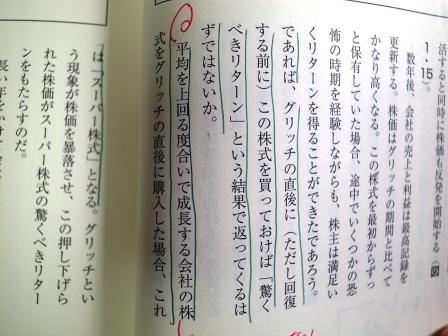 活すると同時に株価も反発を開始する（図
1・15）。
数年後、会社の売上と利益は最高記録を
更新する。株価はグリッチの期間と比べて
かなり高くなる。この株式を最初からずっ
と保有していた場合、途中でいくつかの恐
怖の時期を経験しながらも、株主は満足い
くリターンを得ることができたであろう。
であれば、グリッチの直後に（ただし回復
する前に）この株式を買っておけば「驚く
べきリターン」という結果で返ってくるは
ずではないか。
平均を上回る度合いで成長する会社の株
式をグリッチの直後に購入した場合、これ
は「スーパー株式」となる。グリッチとい
う現象が株価を暴落させ、この押し下げら
れた株価がスーパー株式の驚くべきリター
ンをもたらすのだ。